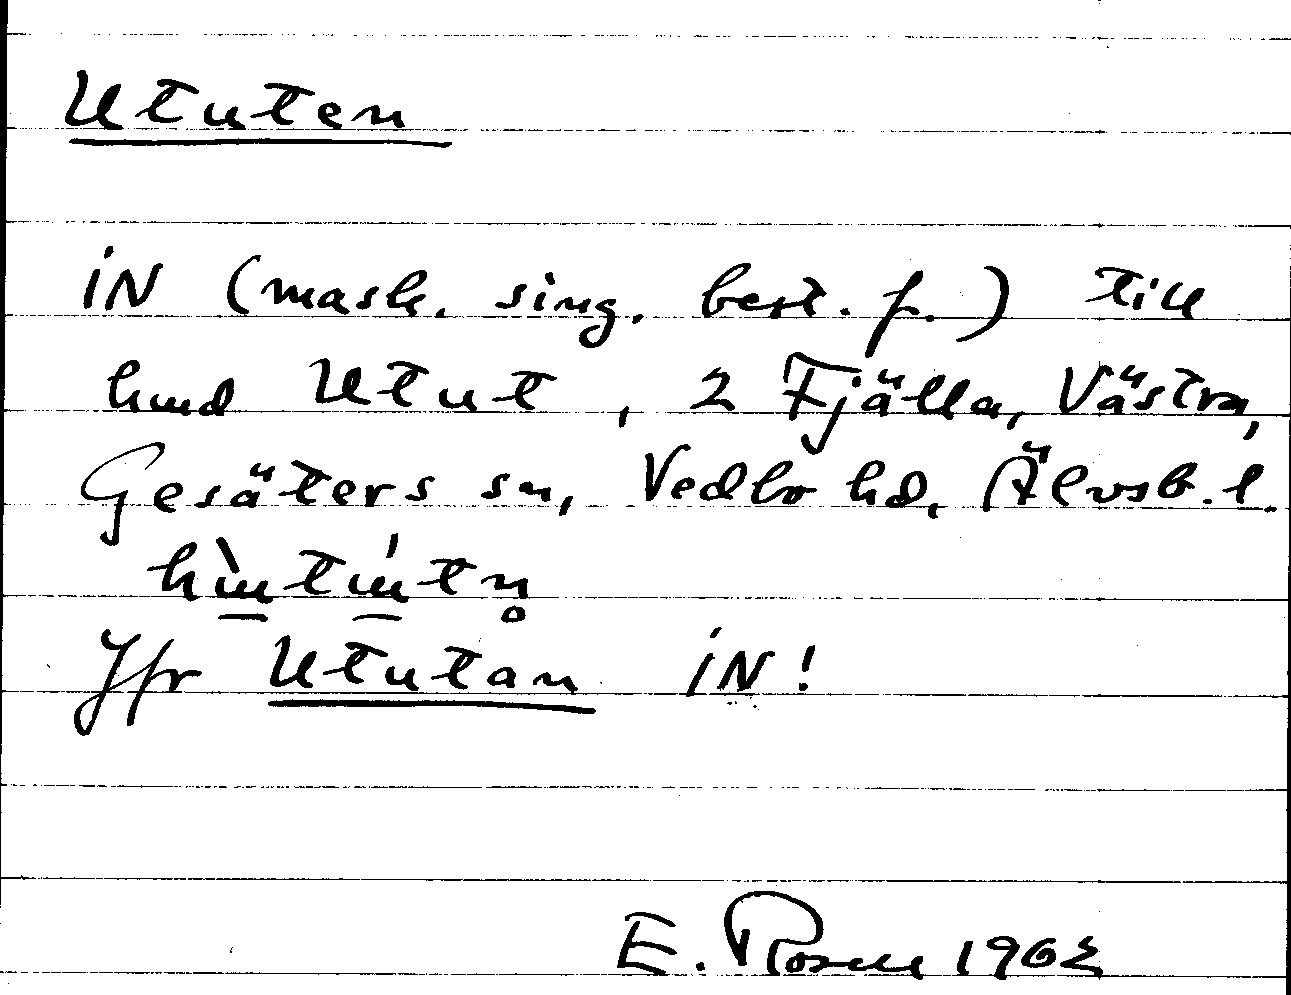 Ututen
IN (mask. sing. best. f.) till
hmd Utut, 2 Fjälla, Västra,
Gesäters sn, Vedbo hd, Älvsb. l.
Jfr Ututan IN!
E. Rosell 1962